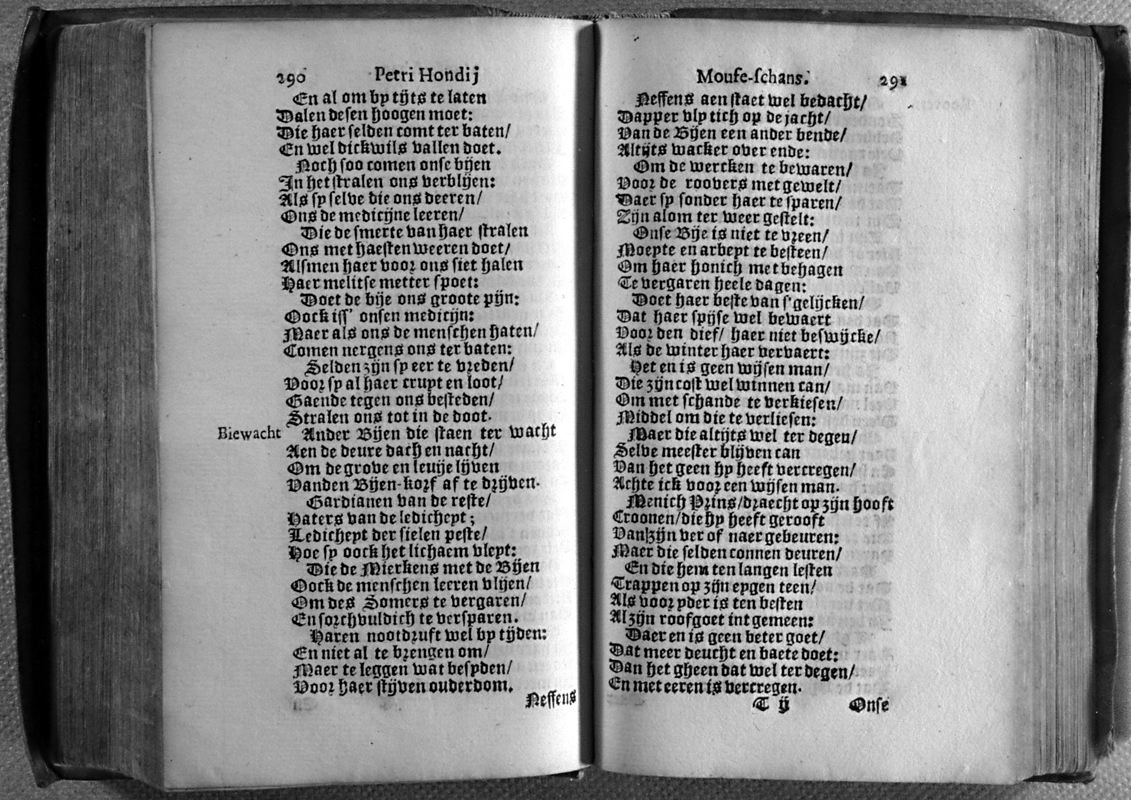 290 Petri Hondij
En al om by tijts te laten
Dalen desen hoogen moet:
Die haer selden comt ter baten/
En wel dickwils vallen doet.
Noch soo comen onse bijen
In het stralen ons verblijen:
Als sy selve die ons deeren/
Ons de medicijne leeren/
Die de smerte van haer stralen
Ons met haesten weeren doet/
Alsmen haer voor ons siet halen
Haer melitse metter spoet:
Doet de bije ons groote pijn:
Oock iss' onsen medicijn:
Maer als ons de menschen haten/
Comen nergens ons ter baten:
Selden zijn sy eer te vreden/
Voor sy al haer crupt en loot/
Gaende tegen ons besteden/
Stralen ons tot in de doot.
Biewacht
Ander Bijen die staen ter wacht
Aen de deure dach en nacht/
Om de grove en leuije lijven
Vanden Bijen-korf af te drijven.
Gardianen van de reste/
Haters van de ledicheyt;
Ledicheyt der sielen peste/
Hoe sy oock het lichaem vleyt:
Die de Mierkens met de Bijen
Oock de menschen leeren vlijen/
Om des Somers te vergaren/
En sorchvuldich te versparen.
Haren nootdruft wel by tijden:
En niet al te brengen om/
Maer te leggen wat besyden/
Voor haer stijven ouderdom.
Neffens
Mouse-schans. 291
Neffens aen staet wel bedacht/
Dapper vlytich op de jacht/
Van de Bijen een ander bende/
Altijts wacker over ende:
Om de wercken te bewaren/
Voor de roovers met gewelt/
Daer sy sonder haer te sparen/
Zijn alom ter weer gestelt:
Onse Bije is niet te vreen/
Moeyte en arbeyt te besteen/
Om haer honich met behagen
Te vergaren heele dagen:
Doet haer beste van s'gelijcken/
Dat haer spijse wel bewaert
Voor den dief/ haer niet beswijcke/
Als de winter haer vervaert:
Het en is geen wijsen man/
Die zijn cost wel winnen can/
Om met schande te verkiesen/
Middel om die te verliesen:
Maer die altijts wel ter degen/
Selve meester blijven can
Van het geen hy heeft vercregen/
Achte ick voor een wijsen man.
Menich Prins/draecht op zijn hooft
Croonen/die hy heeft gerooft
Van zijn ver of naer gebeuren:
Maer die selden connen deuren/
En die hem ten langen lesten
Trappen op zijn eygen teen/
Als voor yder is ten besten
Al zijn roofgoet int gemeen:
Daer en is geen beter goet/
Dat meer deucht en baete doet:
Dan het gheen dat wel ter degen/
En met eeren is vercregen.
T ij Onse